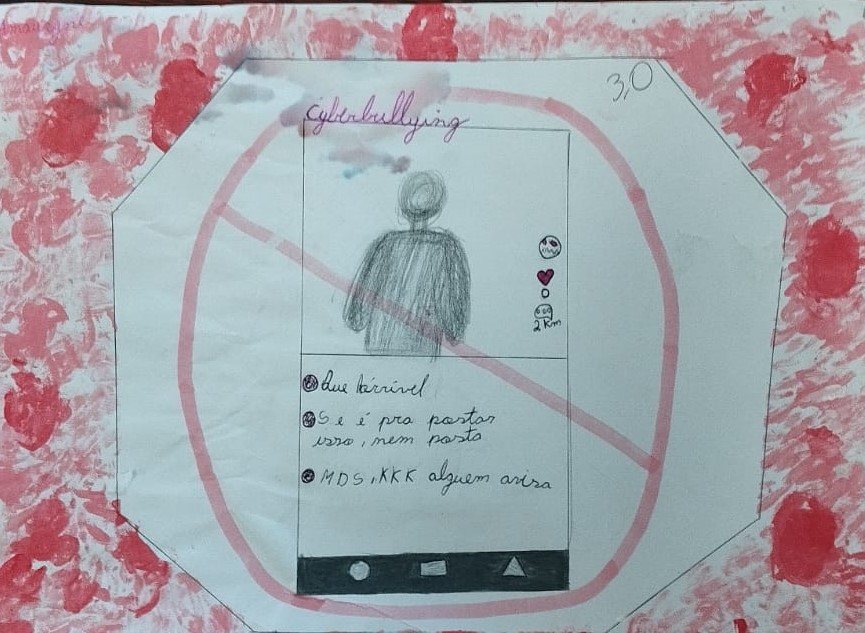 3,0
cyberbullying
0
2 Km
Que hórrivel
Se é pra postar
isso, nem posto
MDS, KKK alguem avisa